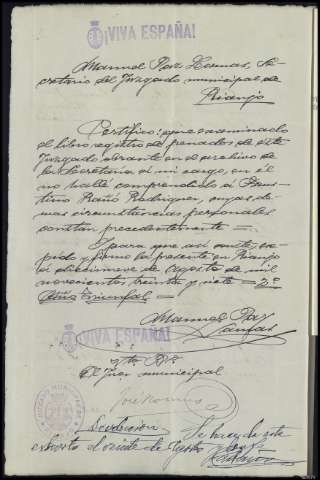 ¡VIVA ESPAÑA!
Manuel Paz Lesmas, Se-
cretario del Juzgado municipal de
Rianjo
Certifico: que examinado
el libro registro de penados de este
Juzgado obrante en el archivo de
la Secretaria a mi cargo, en él
no hallé comprendido á Faus-
tino Rañó Rodriguez, cuyas de-
mas circunstancias personales
constan precedentemente.=
Y para que asi conste, ex-
pido y firmo la presente en Rianjo
á diecinueve de Agosto de mil
novecientos treinta y siete = 2º
Año Triunfal =
Manuel Paz
¡VIVA ESPAÑA!
Vto. Bno
El Juez municipal
Devolucion
exhorto el veinte de Agosto
Se hace de este